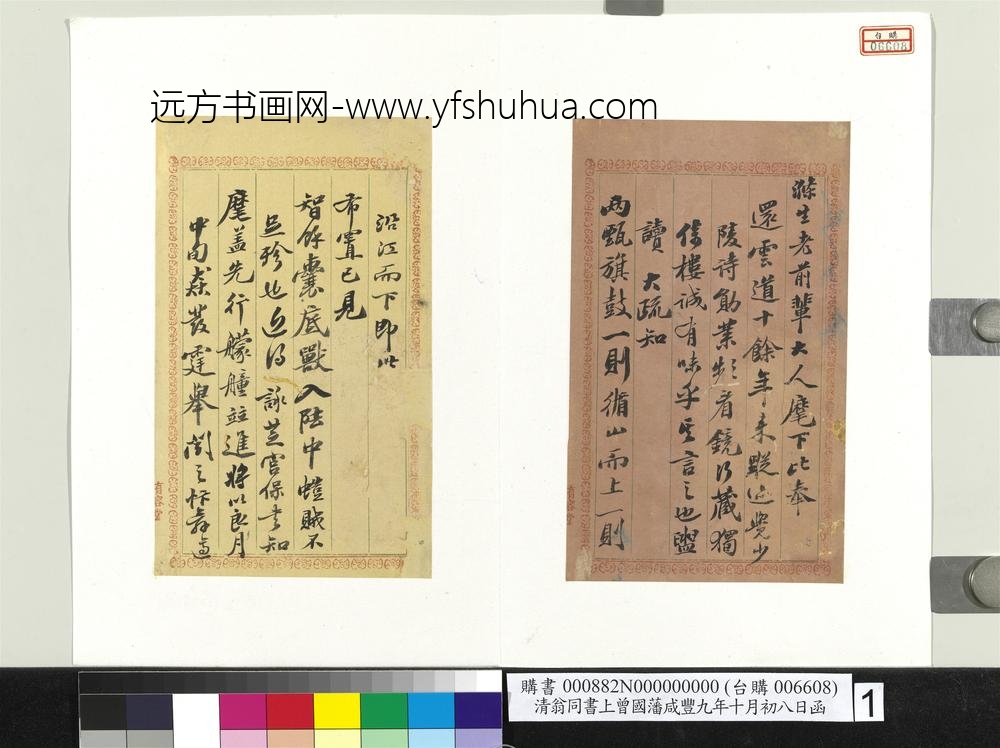 远方书画网-www.yfshuhua.com
台購
006608
滌生老前輩大人麾下比奉
還雲道十餘年來蹤迹覺少
陵詩勛業頻看鏡行藏獨
倚樓誠有味乎其言之也盥
讀 大疏知
兩甄旗鼓一則循山而上一則
沿江而下即此
布置已見
智餘囊底獸入中螘賊不
足殄也近得 詠芝宮保書知
麾蓋先行艨艟竝進將以良月
中旬猋發霆舉聞之忭舞
購書 000882N000000000 (台購 006608)
清翁同書上曾國藩咸豐九年十月初八日函
1